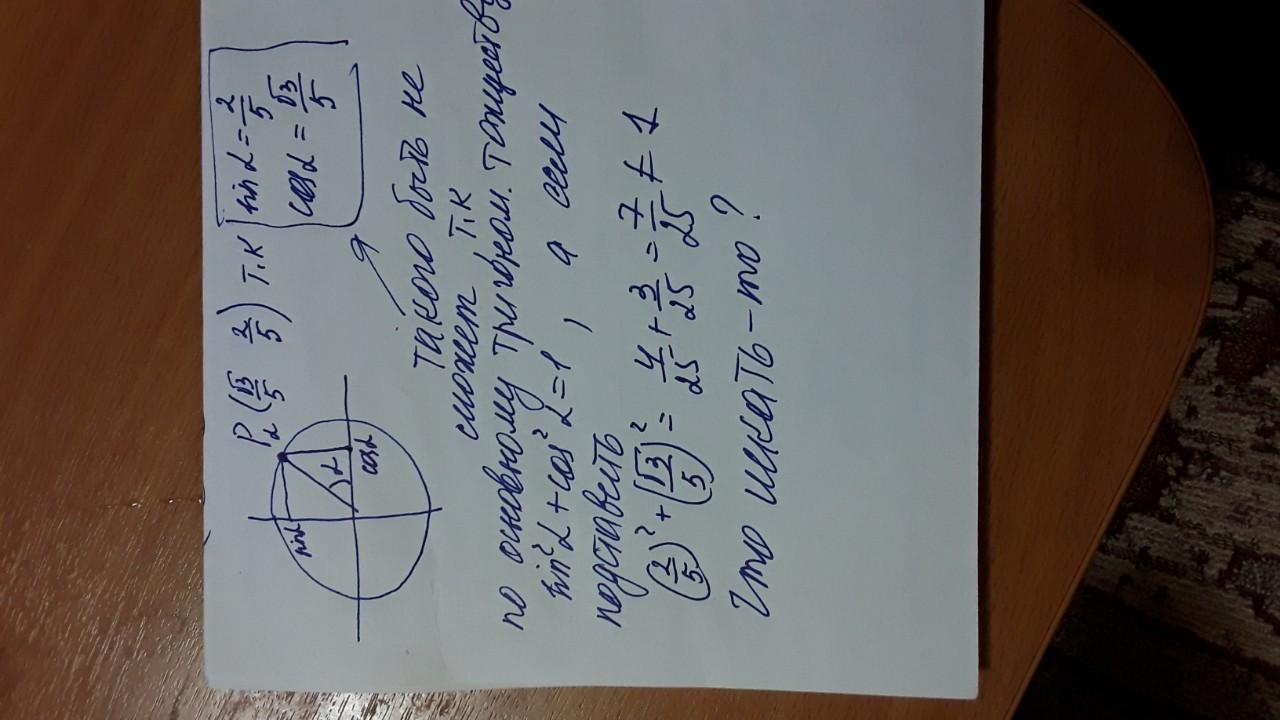 P_α (√3/5 2/5) т.к sin α = 2/5
cos α = √3/5
sinα
α
cosα
такого быть не
сможет т.к
по основному тригоном. тождеству
sin²α + cos²α = 1, а если
подставить
(2/5)² + (√3/5)² = 4/25 + 3/25 = 7/25 ≠ 1
Что искать-то?